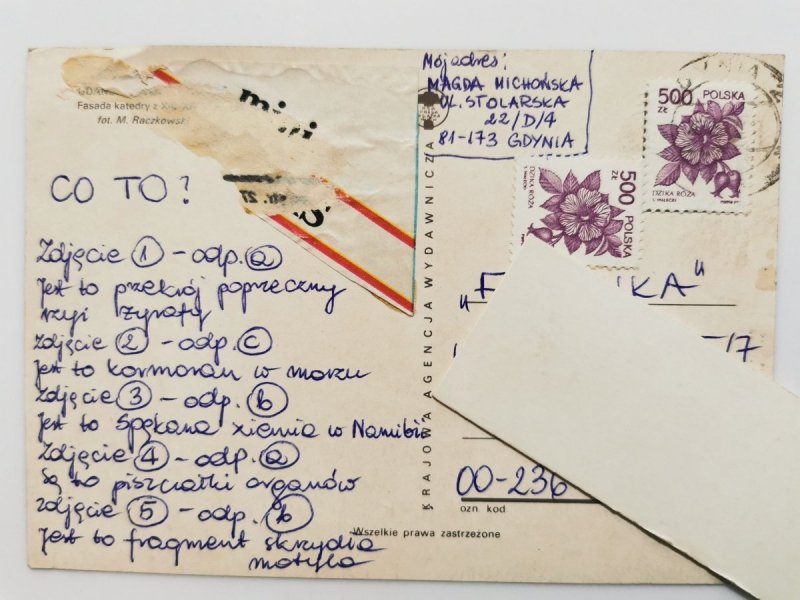 GDAŃ
Fasada katedry z XI
fot. M. Raczkows
CO TO?
Zdjęcie 1 - odp. a
Jest to przekrój poprzeczny
szyi żyrafy
Zdjęcie 2 - odp. c
Jest to kormoran w morzu
Zdjęcie 3 - odp. b
Jest to spękana ziemia w Namibii
Zdjęcie 4 - odp. a
Są to piszczałki organów
Zdjęcie 5 - odp. b
Jest to fragment skrzydła
motyla
Wszelkie prawa zastrzeżone
KRAJOWA AGENCJA WYDAWNICZA
Mój adres:
MAGDA MICHOŃSKA
UL. STOLARSKA
22/D/4
81-173 GDYNIA
500 ZŁ POLSKA
DZIKA RÓŻA
500 ZŁ POLSKA
DZIKA RÓŻA
"F KA"
-17
00-236
ozn. kod